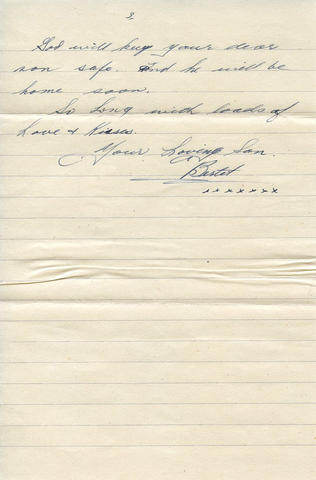 3
God will keep your dear
son safe. And he will be
home soon.
So long with loads of
Love & Kisses.
Your Loving Son.
x x x x x x x